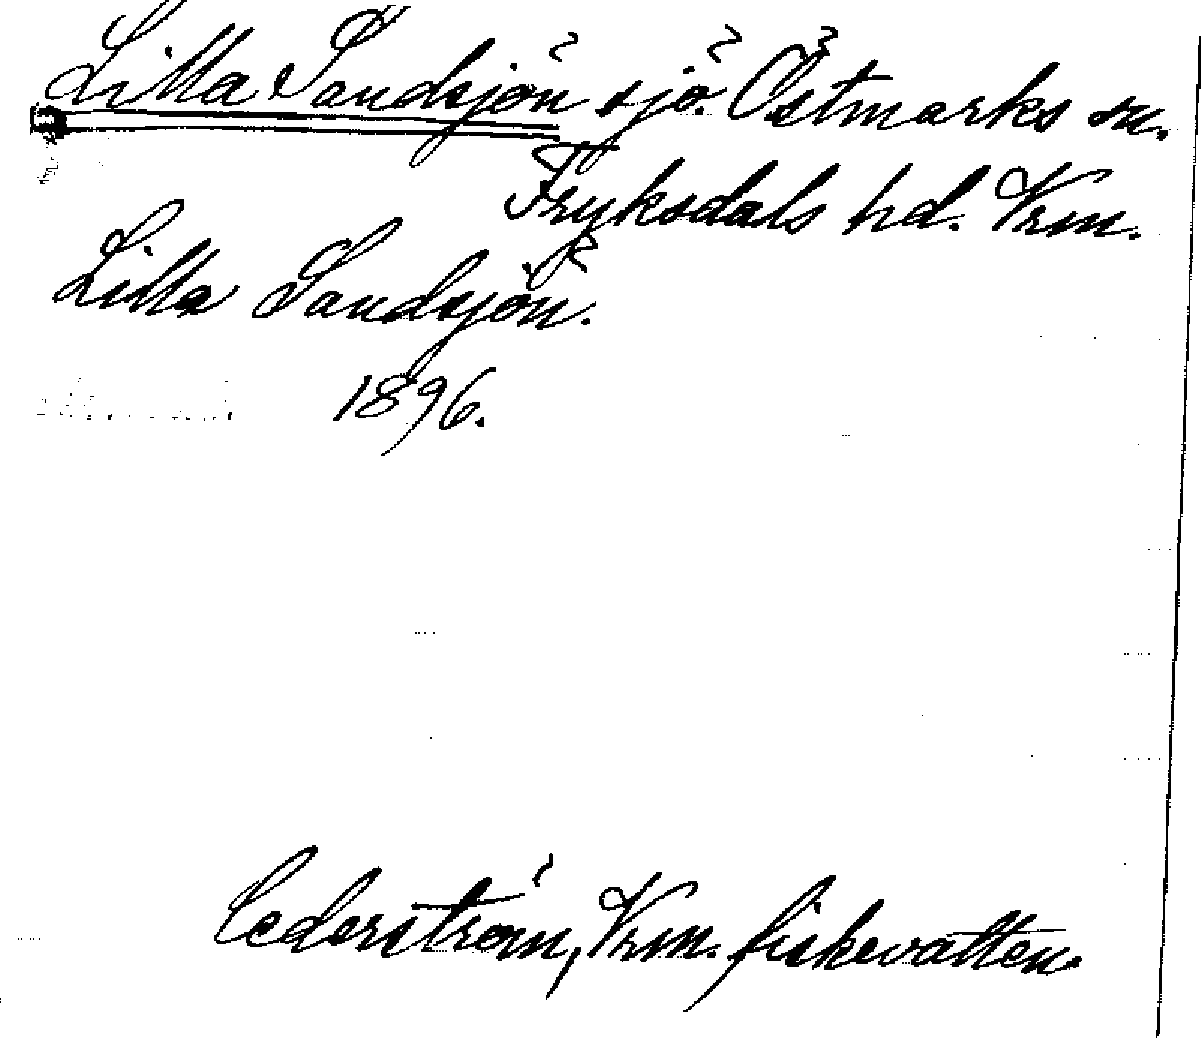 Lilla Sandsjön sjö. Östmarks sn.
Fryksdals hd. Vrm.
Lilla Sandsjön.
1896.
Cederström, Vrm. fiskevatten.